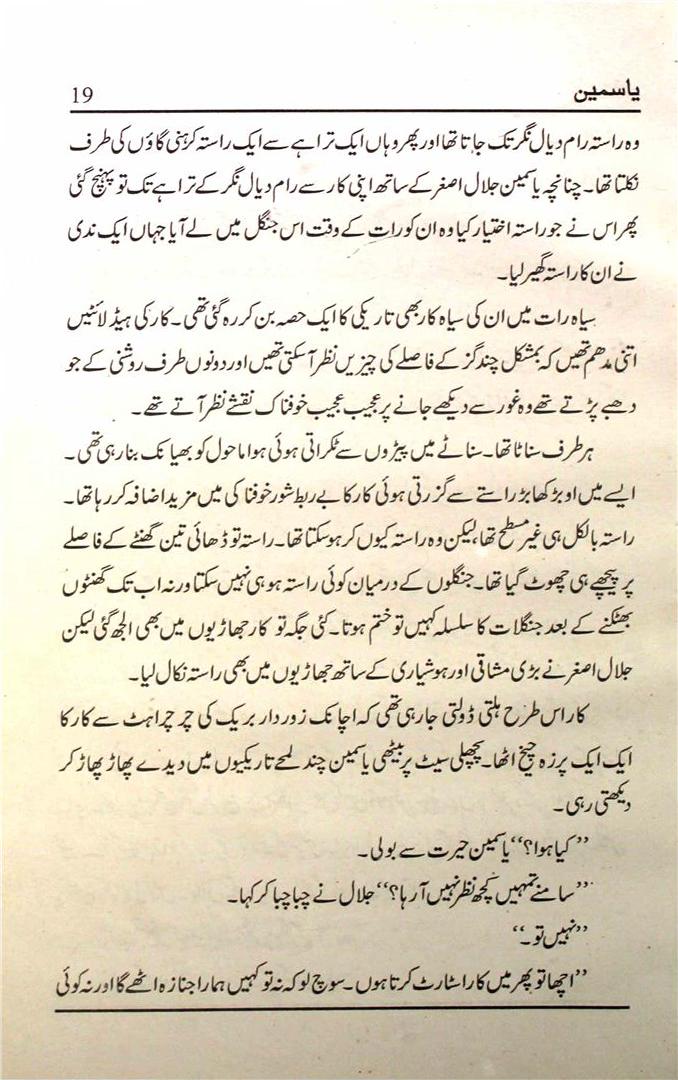 یاسمین 19
وہ راستہ رام دیال نگر تک جاتا تھا اور پھر وہاں ایک تراہے سے ایک راستہ کرہنی گاؤں کی طرف
نکلتا تھا۔ چنانچہ یاسمین جلال اصغر کے ساتھ اپنی کار سے رام دیال نگر کے تراہے تک تو پہنچ گئی
پھر اس نے جو راستہ اختیار کیا وہ ان کو رات کے وقت اس جنگل میں لے آیا جہاں ایک ندی
نے ان کا راستہ گھیر لیا۔
سیاہ رات میں ان کی سیاہ کار بھی تاریکی کا ایک حصہ بن کر رہ گئی تھی۔ کار کی ہیڈ لائٹیں
اتنی مدھم تھیں کہ بمشکل چند گز کے فاصلے کی چیزیں نظر آسکتی تھیں اور دونوں طرف روشنی کے جو
دھبے پڑتے تھے وہ غور سے دیکھے جانے پر عجیب عجیب خوفناک نقشے نظر آتے تھے۔
ہر طرف سناٹا تھا۔ سناٹے میں پیڑوں سے ٹکراتی ہوئی ہوا ماحول کو بھیانک بنا رہی تھی۔
ایسے میں اوبڑ کھابڑ راستے سے گزرتی ہوئی کار کا بے ربط شور خوفناکی میں مزید اضافہ کر رہا تھا۔
راستہ بالکل ہی غیر مسطح تھا، لیکن وہ راستہ کیوں کر ہوسکتا تھا۔ راستہ تو ڈھائی تین گھنٹے کے فاصلے
پر پیچھے ہی چھوٹ گیا تھا۔ جنگلوں کے درمیان کوئی راستہ ہو ہی نہیں سکتا ورنہ اب تک گھنٹوں
بھٹکنے کے بعد جنگلات کا سلسلہ کہیں تو ختم ہوتا۔ کئی جگہ تو کار جھاڑیوں میں بھی الجھ گئی لیکن
جلال اصغر نے بڑی مشاقی اور ہوشیاری کے ساتھ جھاڑیوں میں بھی راستہ نکال لیا۔
کار اس طرح ہلتی ڈولتی جارہی تھی کہ اچانک زوردار بریک کی چرچراہٹ سے کار کا
ایک ایک پرزہ چیخ اٹھا۔ پچھلی سیٹ پر بیٹھی یاسمین چند لمحے تاریکیوں میں دیدے پھاڑ پھاڑ کر
دیکھتی رہی۔
”کیا ہوا؟“ یاسمین حیرت سے بولی۔
”سامنے تمہیں کچھ نظر نہیں آرہا؟“ جلال نے چبا چبا کر کہا۔
”نہیں تو۔“
”اچھا تو پھر میں کار اسٹارٹ کرتا ہوں۔ سوچ لو کہ نہ تو کہیں ہمارا جنازہ اٹھے گا اور نہ کوئی